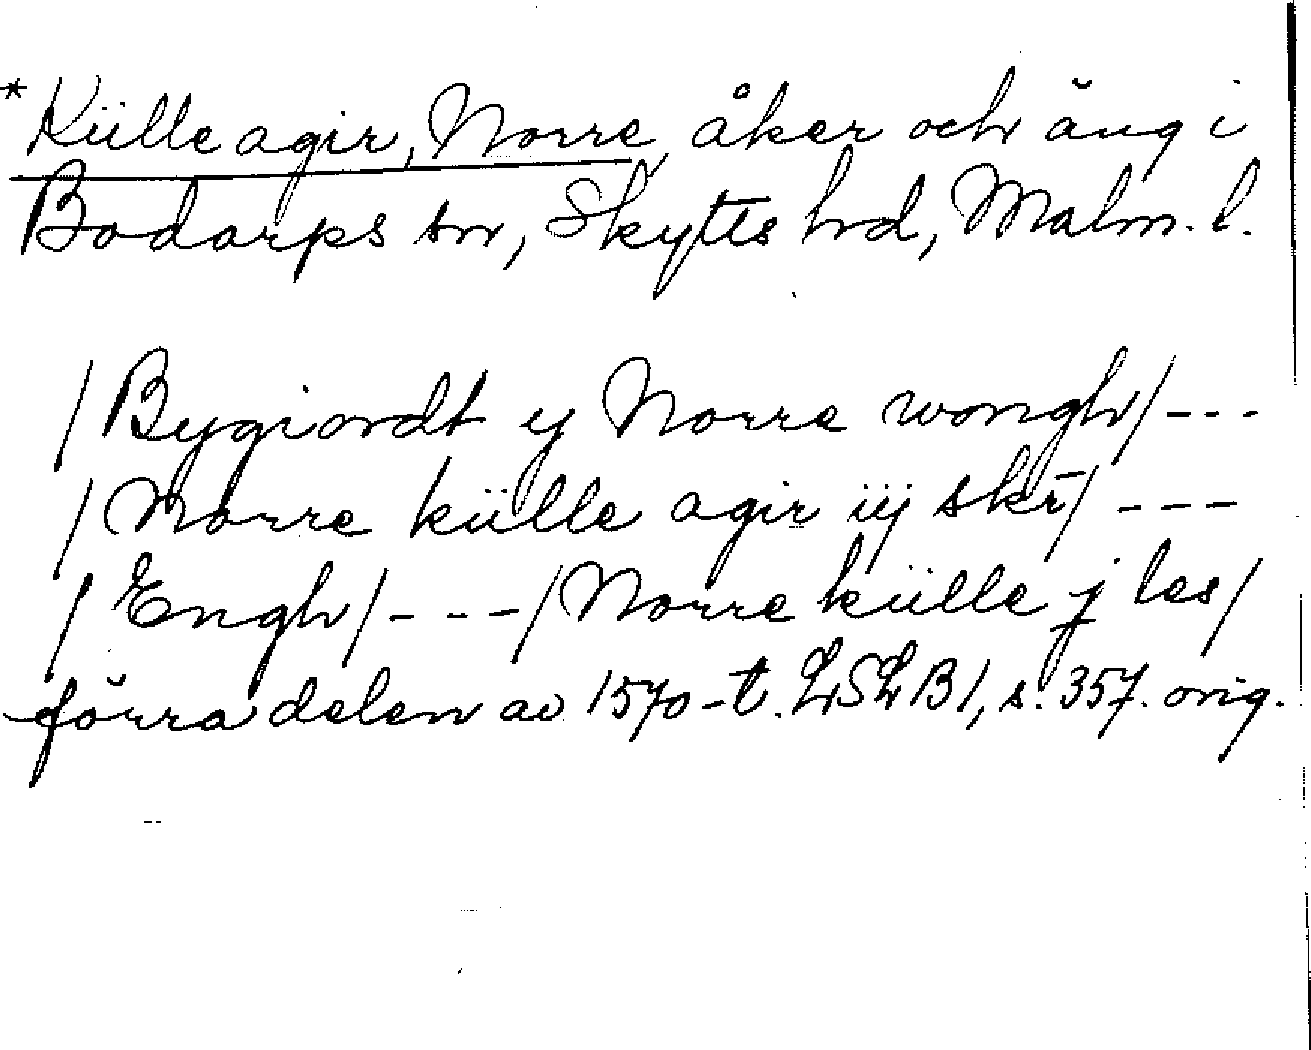 *Külle agir, Norre, åker och äng i
Bodarps sn, Skytts hd, Malm. l.
/Bygiordt y Norre wongh/---
/Norre külle agir iij skr̄/---
/Engh/---/Norre külle j les/
förra delen av 1570-t. LSLB1, s. 357. orig.